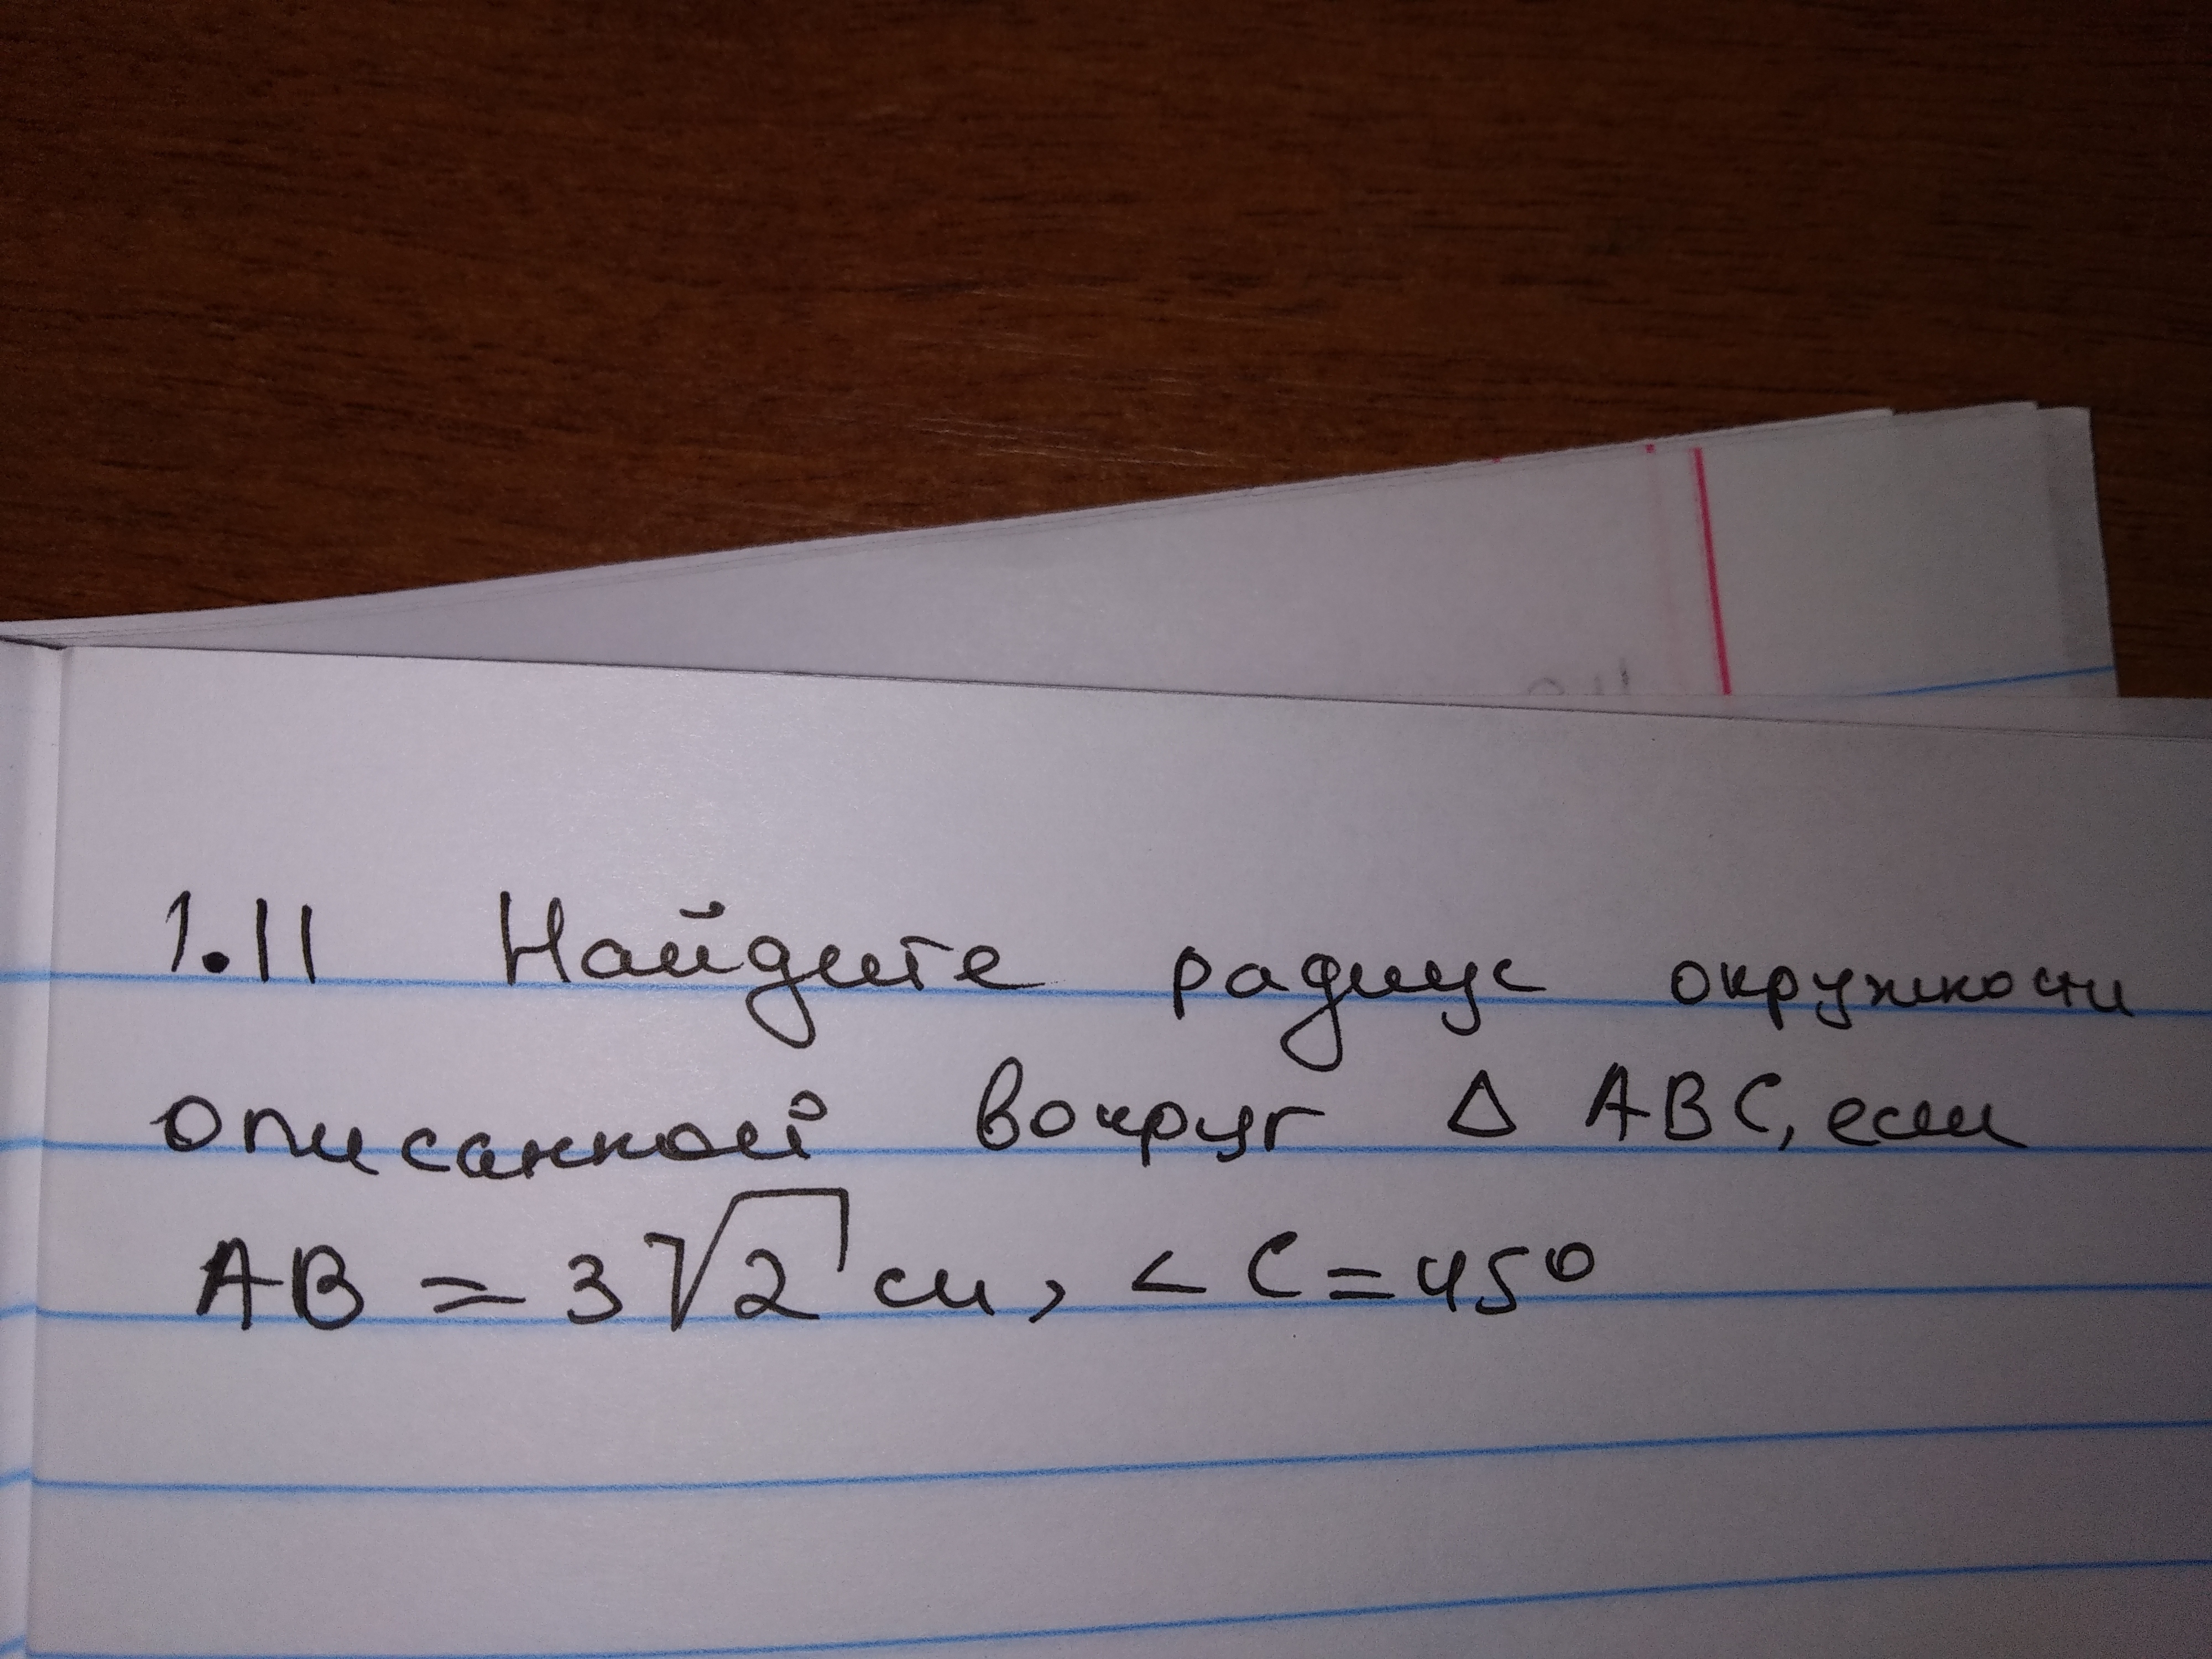 1.11 Найдите радиус окружности
описанной вокруг Δ ABC, если
AB = 3√2 см, < C = 45°